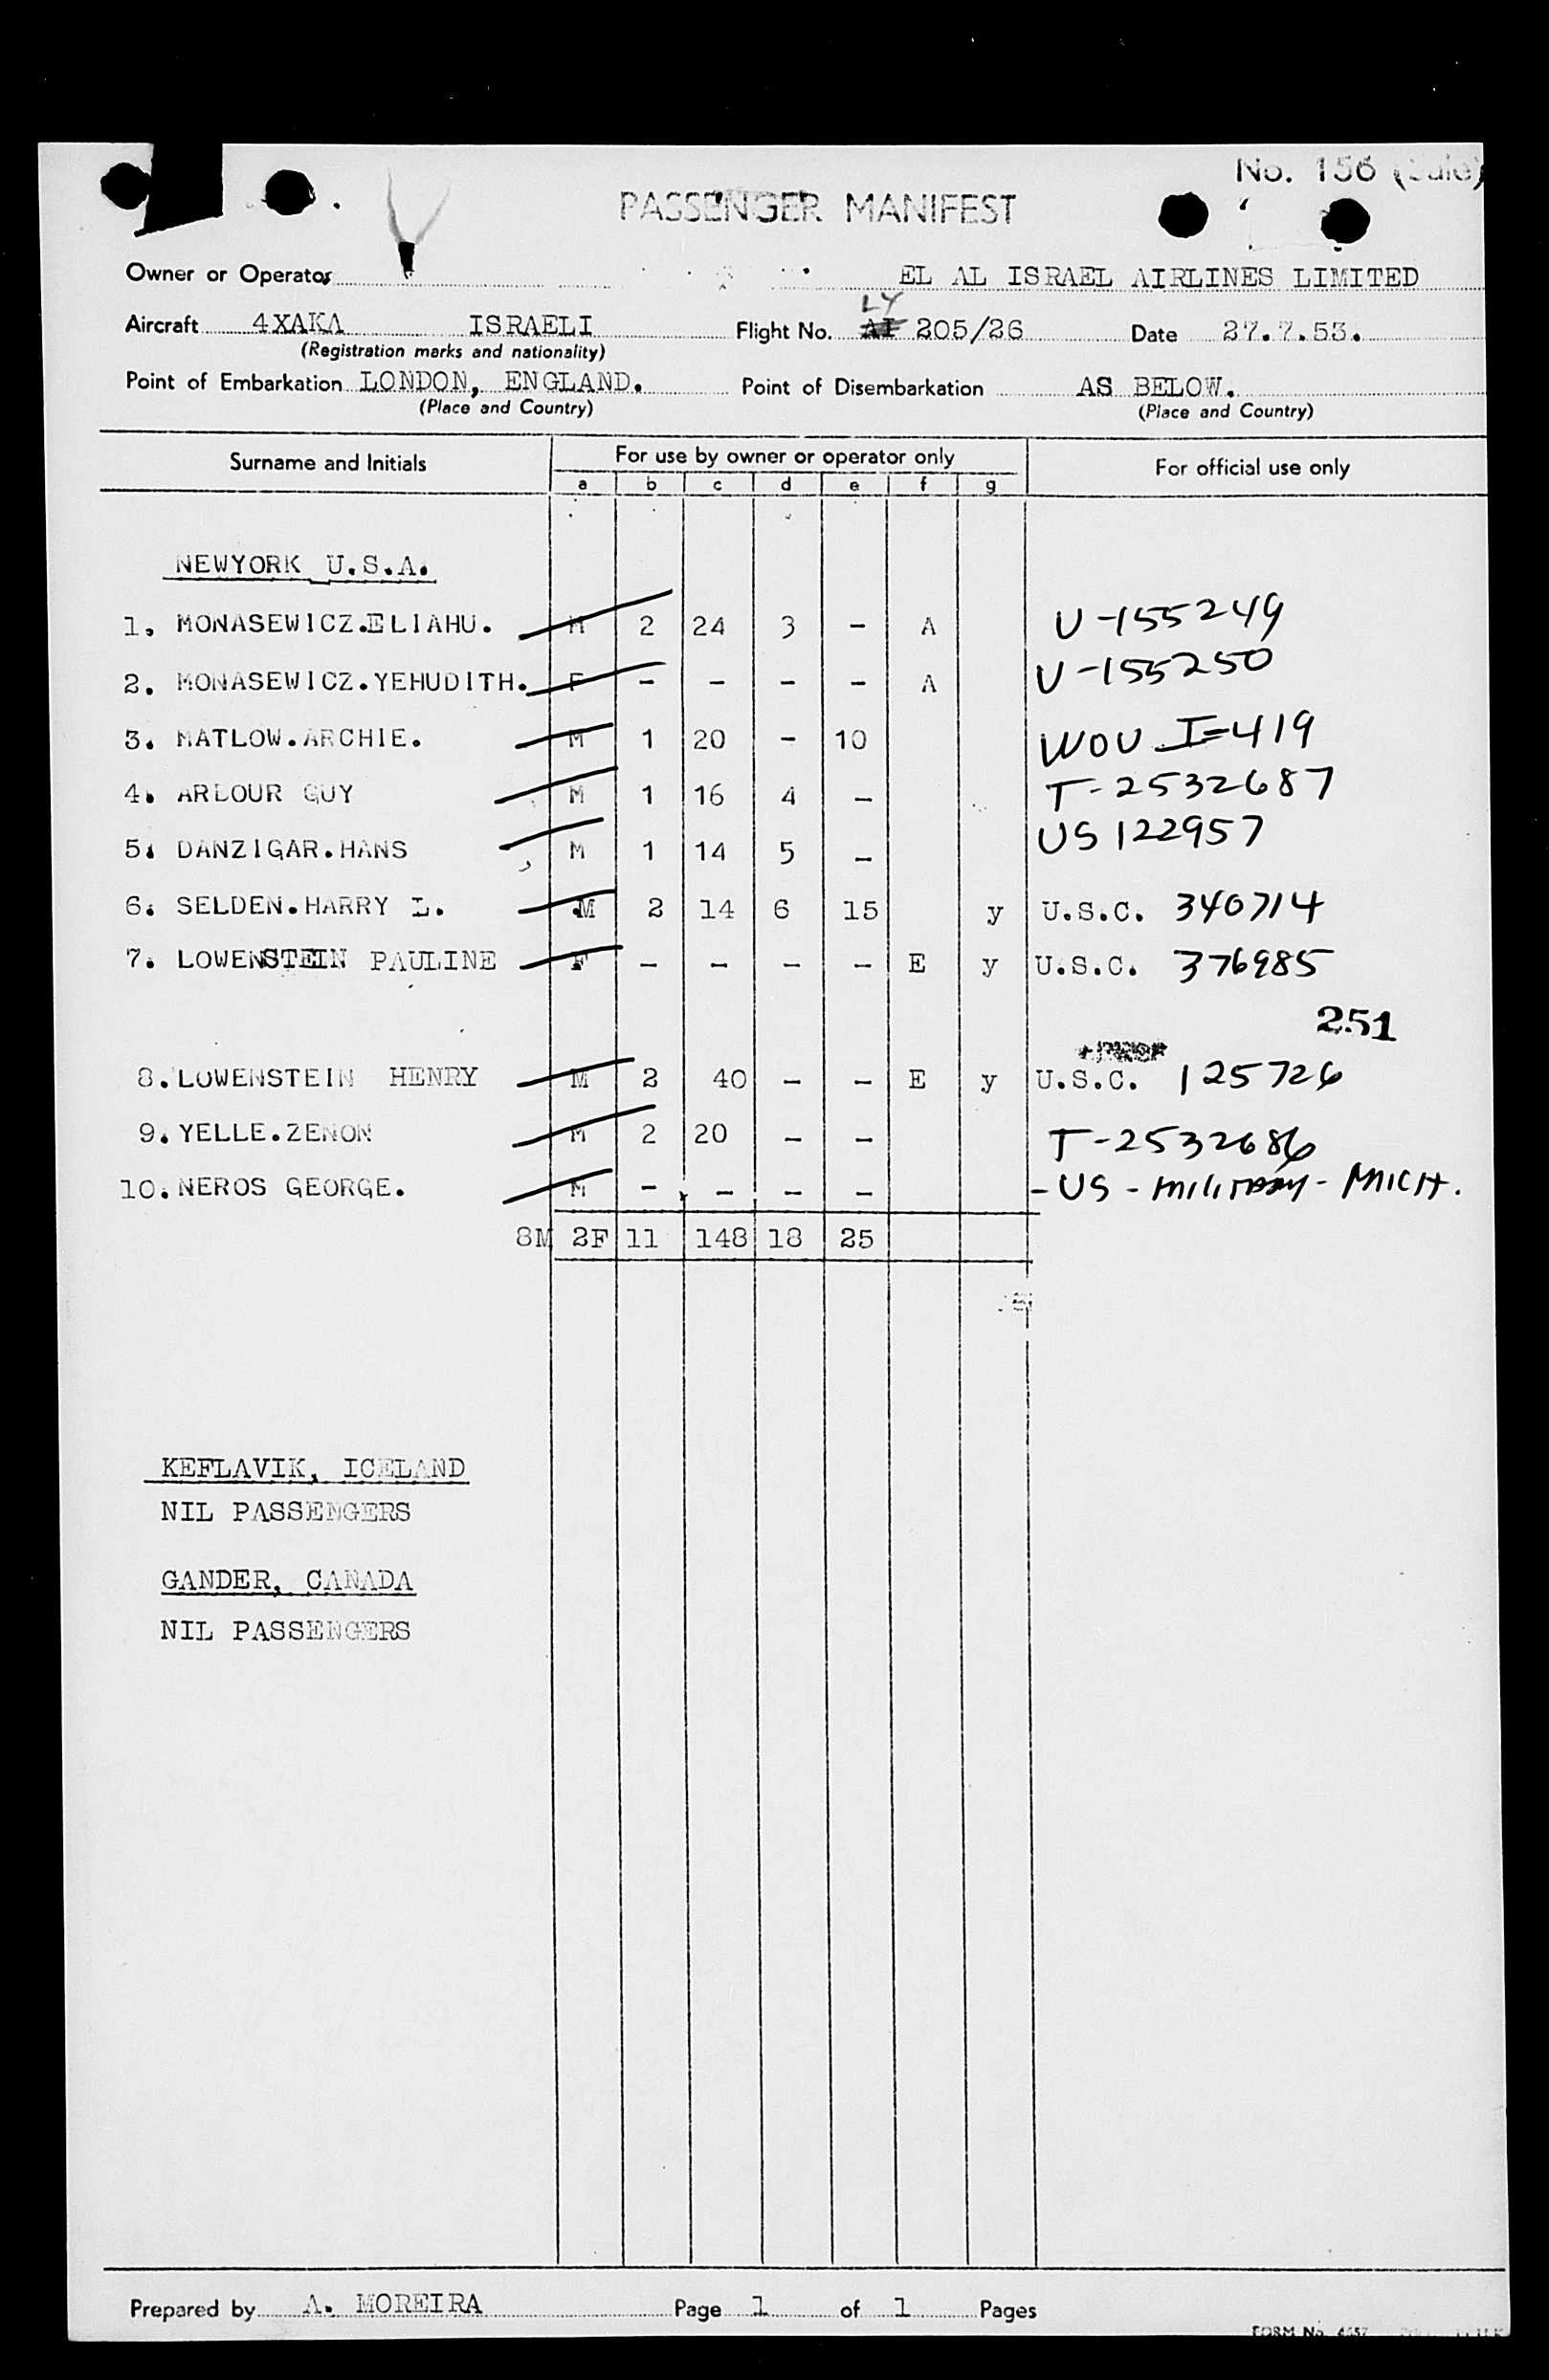 No. 156
PASSENGER MANIFEST
Owner or Operator EL AL ISRAEL AIRLINES LIMITED
LY
Aircraft 4XAKA ISRAELI Flight No. AI 205/26 Date 27.7.53.
(Registration marks and nationality)
Point of Embarkation LONDON, ENGLAND. Point of Disembarkation AS BELOW.
(Place and Country) (Place and Country)
Surname and Initials For use by owner or operator only For official use only
a b c d e f g
NEWYORK U.S.A.
1. MONASEWICZ.ELIAHU. M 2 24 3 - A U-155249
2. MONASEWICZ.YEHUDITH. F - - - - A U-155250
3. MATLOW.ARCHIE. M 1 20 - 10 WOU I-419
4. ARBOUR GUY M 1 16 4 - T-2532687
5. DANZIGAR.HANS M 1 14 5 - US 122957
6. SELDEN.HARRY L. M 2 14 6 15 y U.S.C. 340714
7. LOWENSTEIN PAULINE F - - - - E y U.S.C. 376985
251
8. LOWENSTEIN HENRY M 2 40 - - E y U.S.C. 125726
9. YELLE.ZENON M 2 20 - - T-2532686
10. NEROS GEORGE. M - - - - - US - MILITARY - MICH.
8M 2F 11 148 18 25
KEFLAVIK, ICELAND
NIL PASSENGERS
GANDER, CANADA
NIL PASSENGERS
Prepared by A. MOREIRA Page 1 of 1 Pages
FORM No.